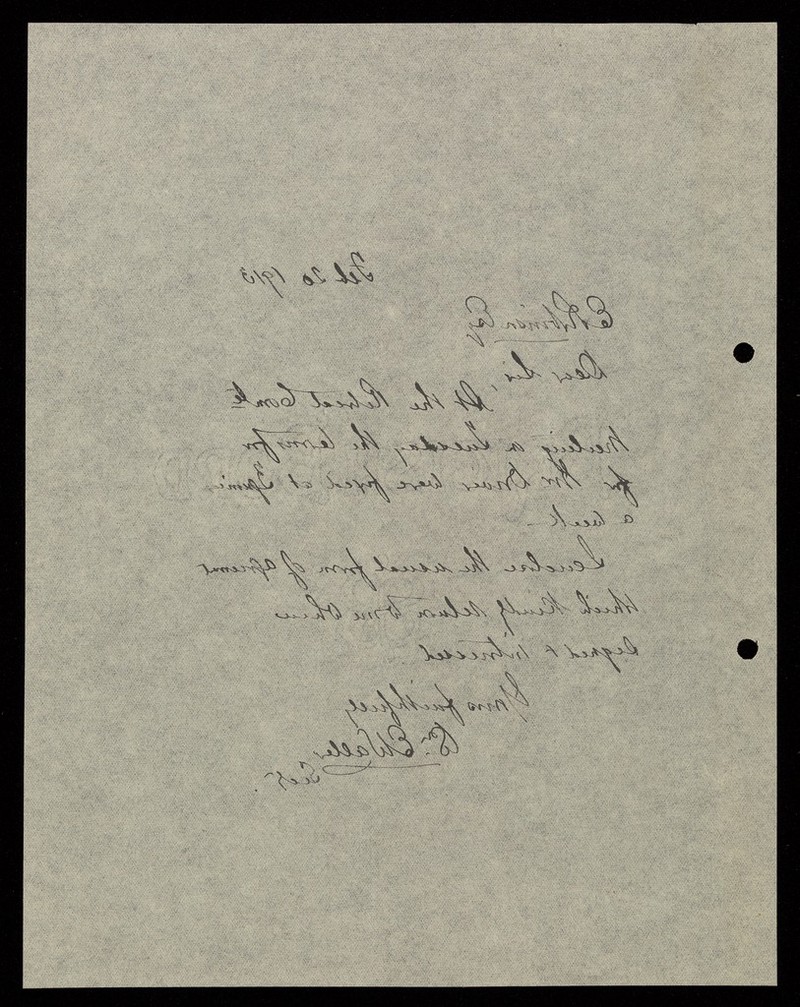 Feb 20 1913
E Robinson Esq
Dear Sir,
At the Retreat Comte
Meeting on Tuesday the terms for
for Mr were fixed at 3 gui's
a week –
I enclose the usual form of agreemt
which kindly return to me when
signed & witnessed
Yours faithfully
E Waller
Secy.